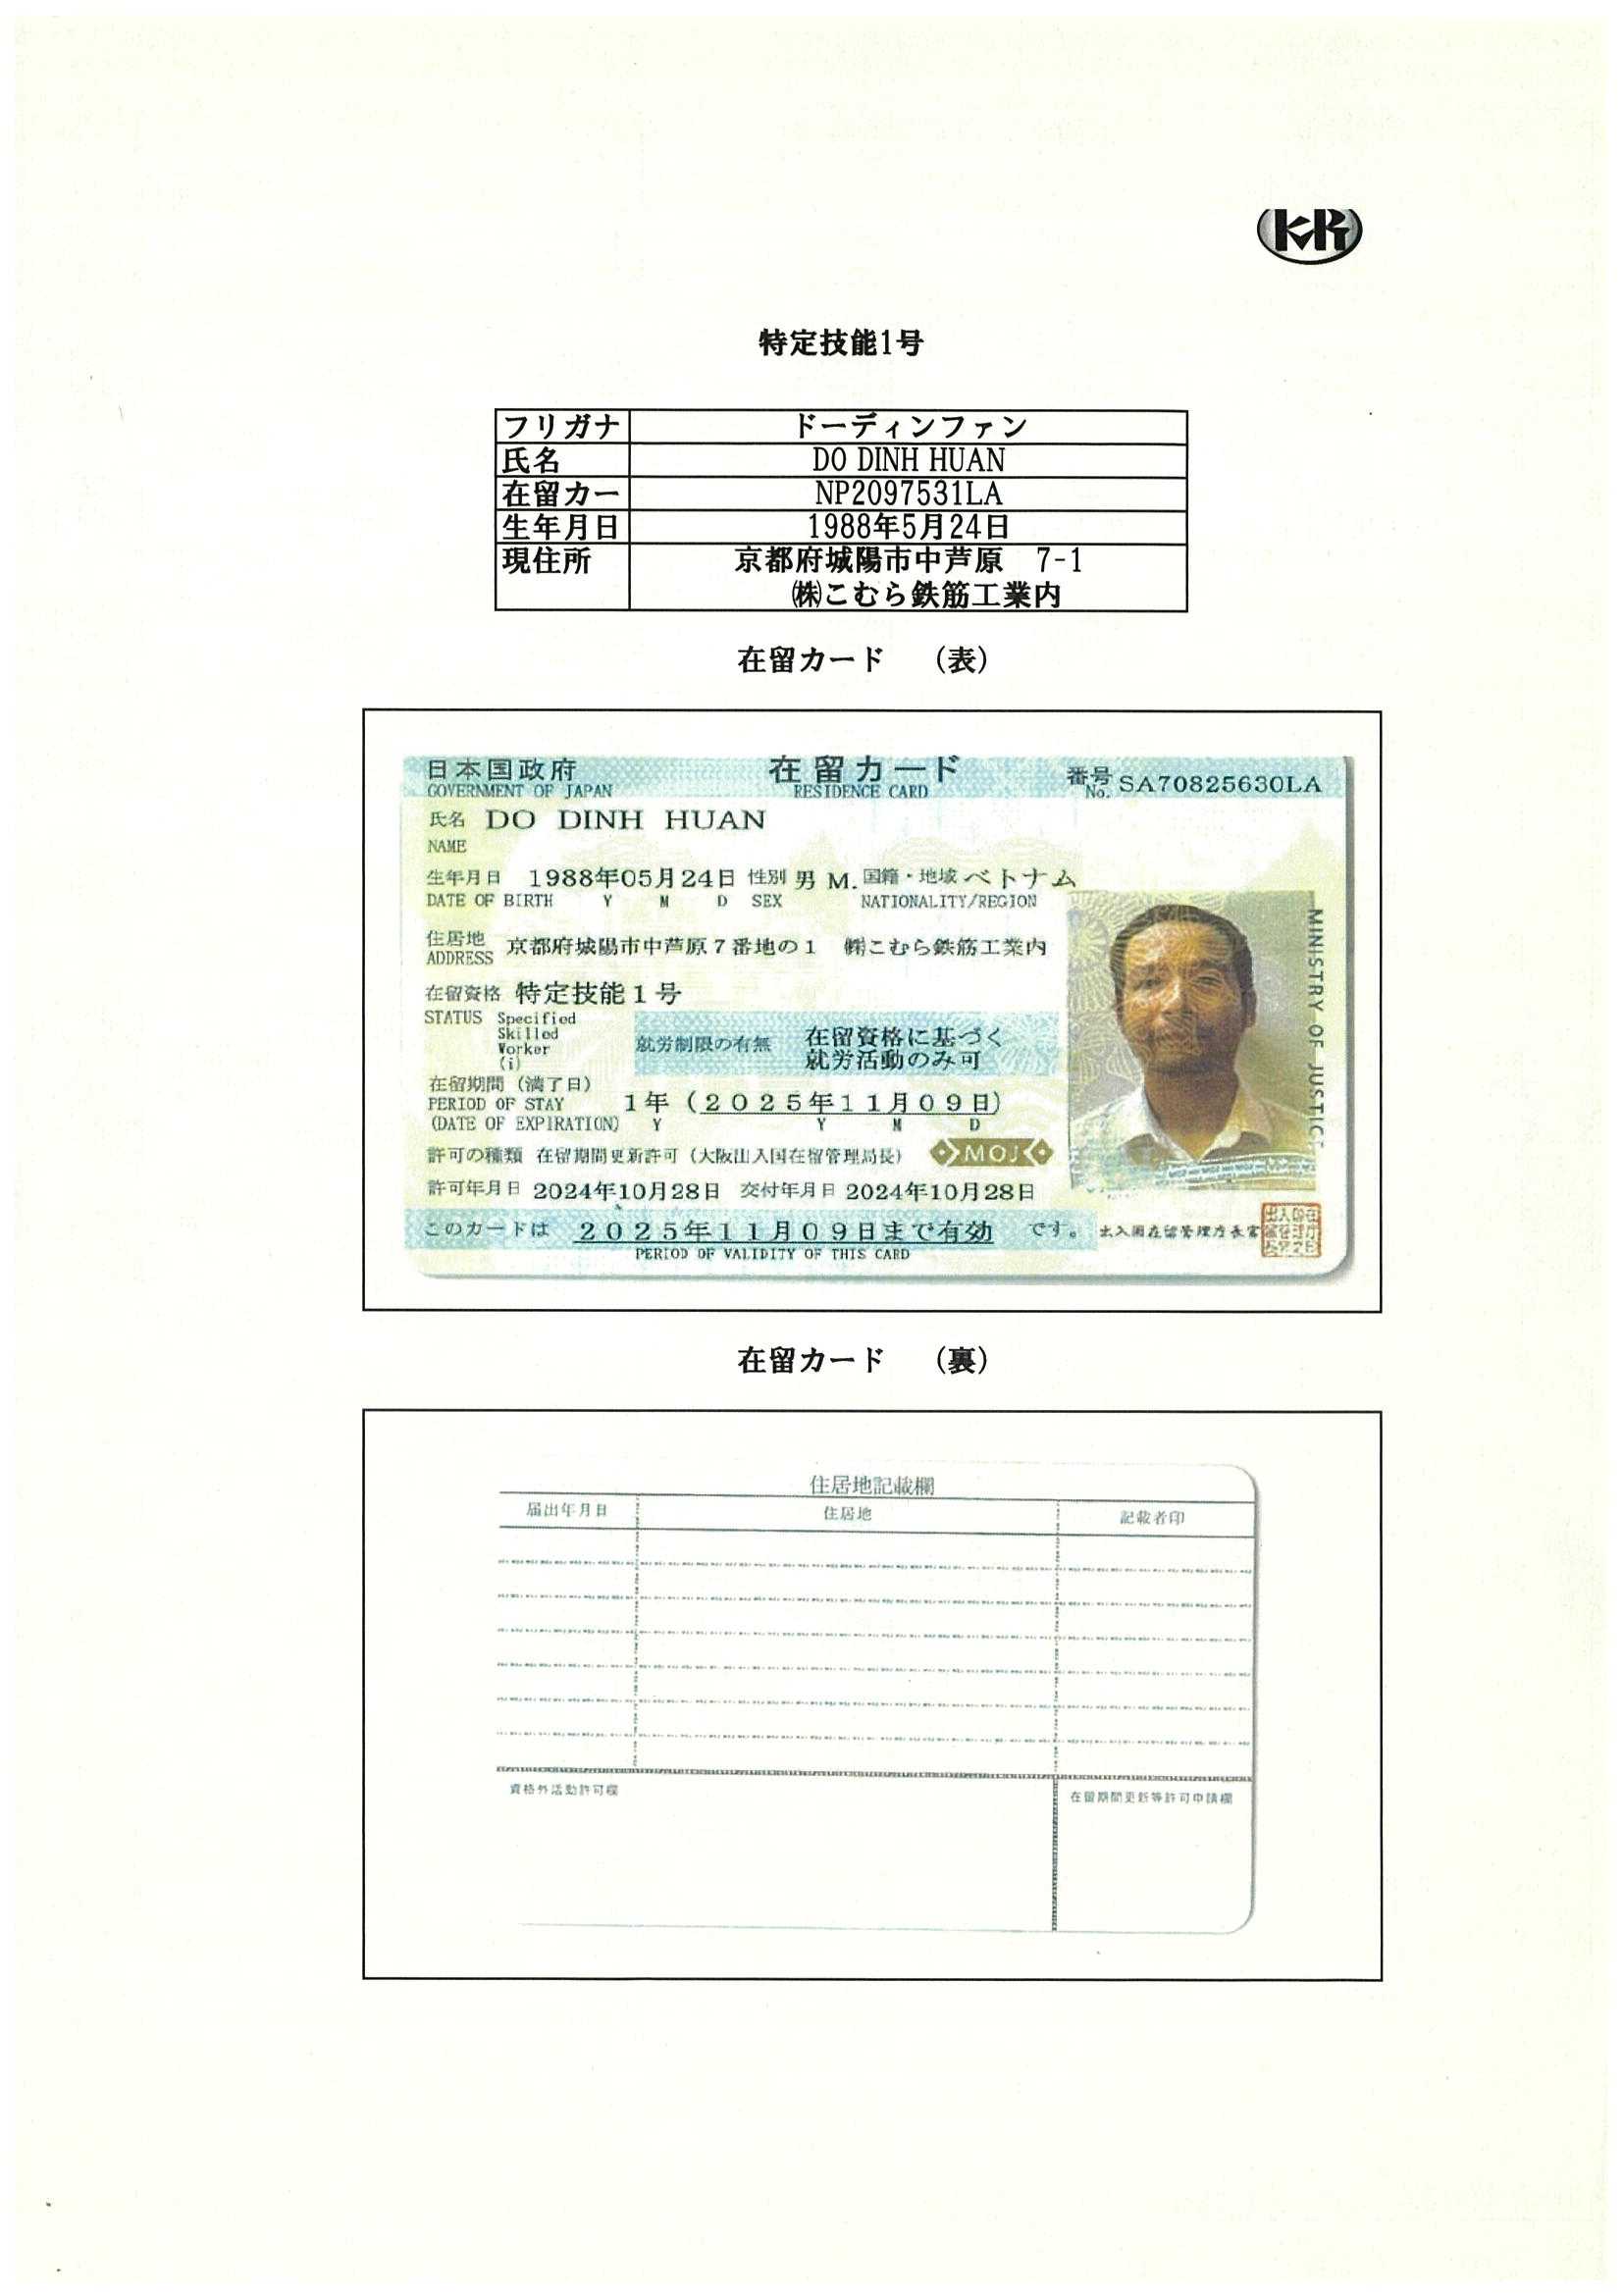 KR
特定技能1号
フリガナ ドーディンファン
氏名 DO DINH HUAN
在留カー NP2097531LA
生年月日 1988年5月24日
現住所 京都府城陽市中芦原 7-1
㈱こむら鉄筋工業内
在留カード (表)
日本国政府 在留カード 番号 SA70825630LA
GOVERNMENT OF JAPAN RESIDENCE CARD No.
氏名 DO DINH HUAN
NAME
生年月日 1988年05月24日 性別 男 M. 国籍・地域 ベトナム
DATE OF BIRTH Y M D SEX NATIONALITY/REGION
住居地 京都府城陽市中芦原7番地の1 ㈱こむら鉄筋工業内
ADDRESS
在留資格 特定技能1号
STATUS Specified
Skilled
Worker
(i)
就労制限の有無 在留資格に基づく
就労活動のみ可
在留期間(満了日)
PERIOD OF STAY 1年(2025年11月09日)
(DATE OF EXPIRATION) Y Y M D
許可の種類 在留期間更新許可(大阪出入国在留管理局長) MOJ
許可年月日 2024年10月28日 交付年月日 2024年10月28日
このカードは 2025年11月09日まで有効 です。 出入国在留管理庁長官
PERIOD OF VALIDITY OF THIS CARD
MINISTRY OF JUSTICE
在留カード (裏)
住居地記載欄
届出年月日 住居地 記載者印
資格外活動許可欄 在留期間更新等許可申請欄